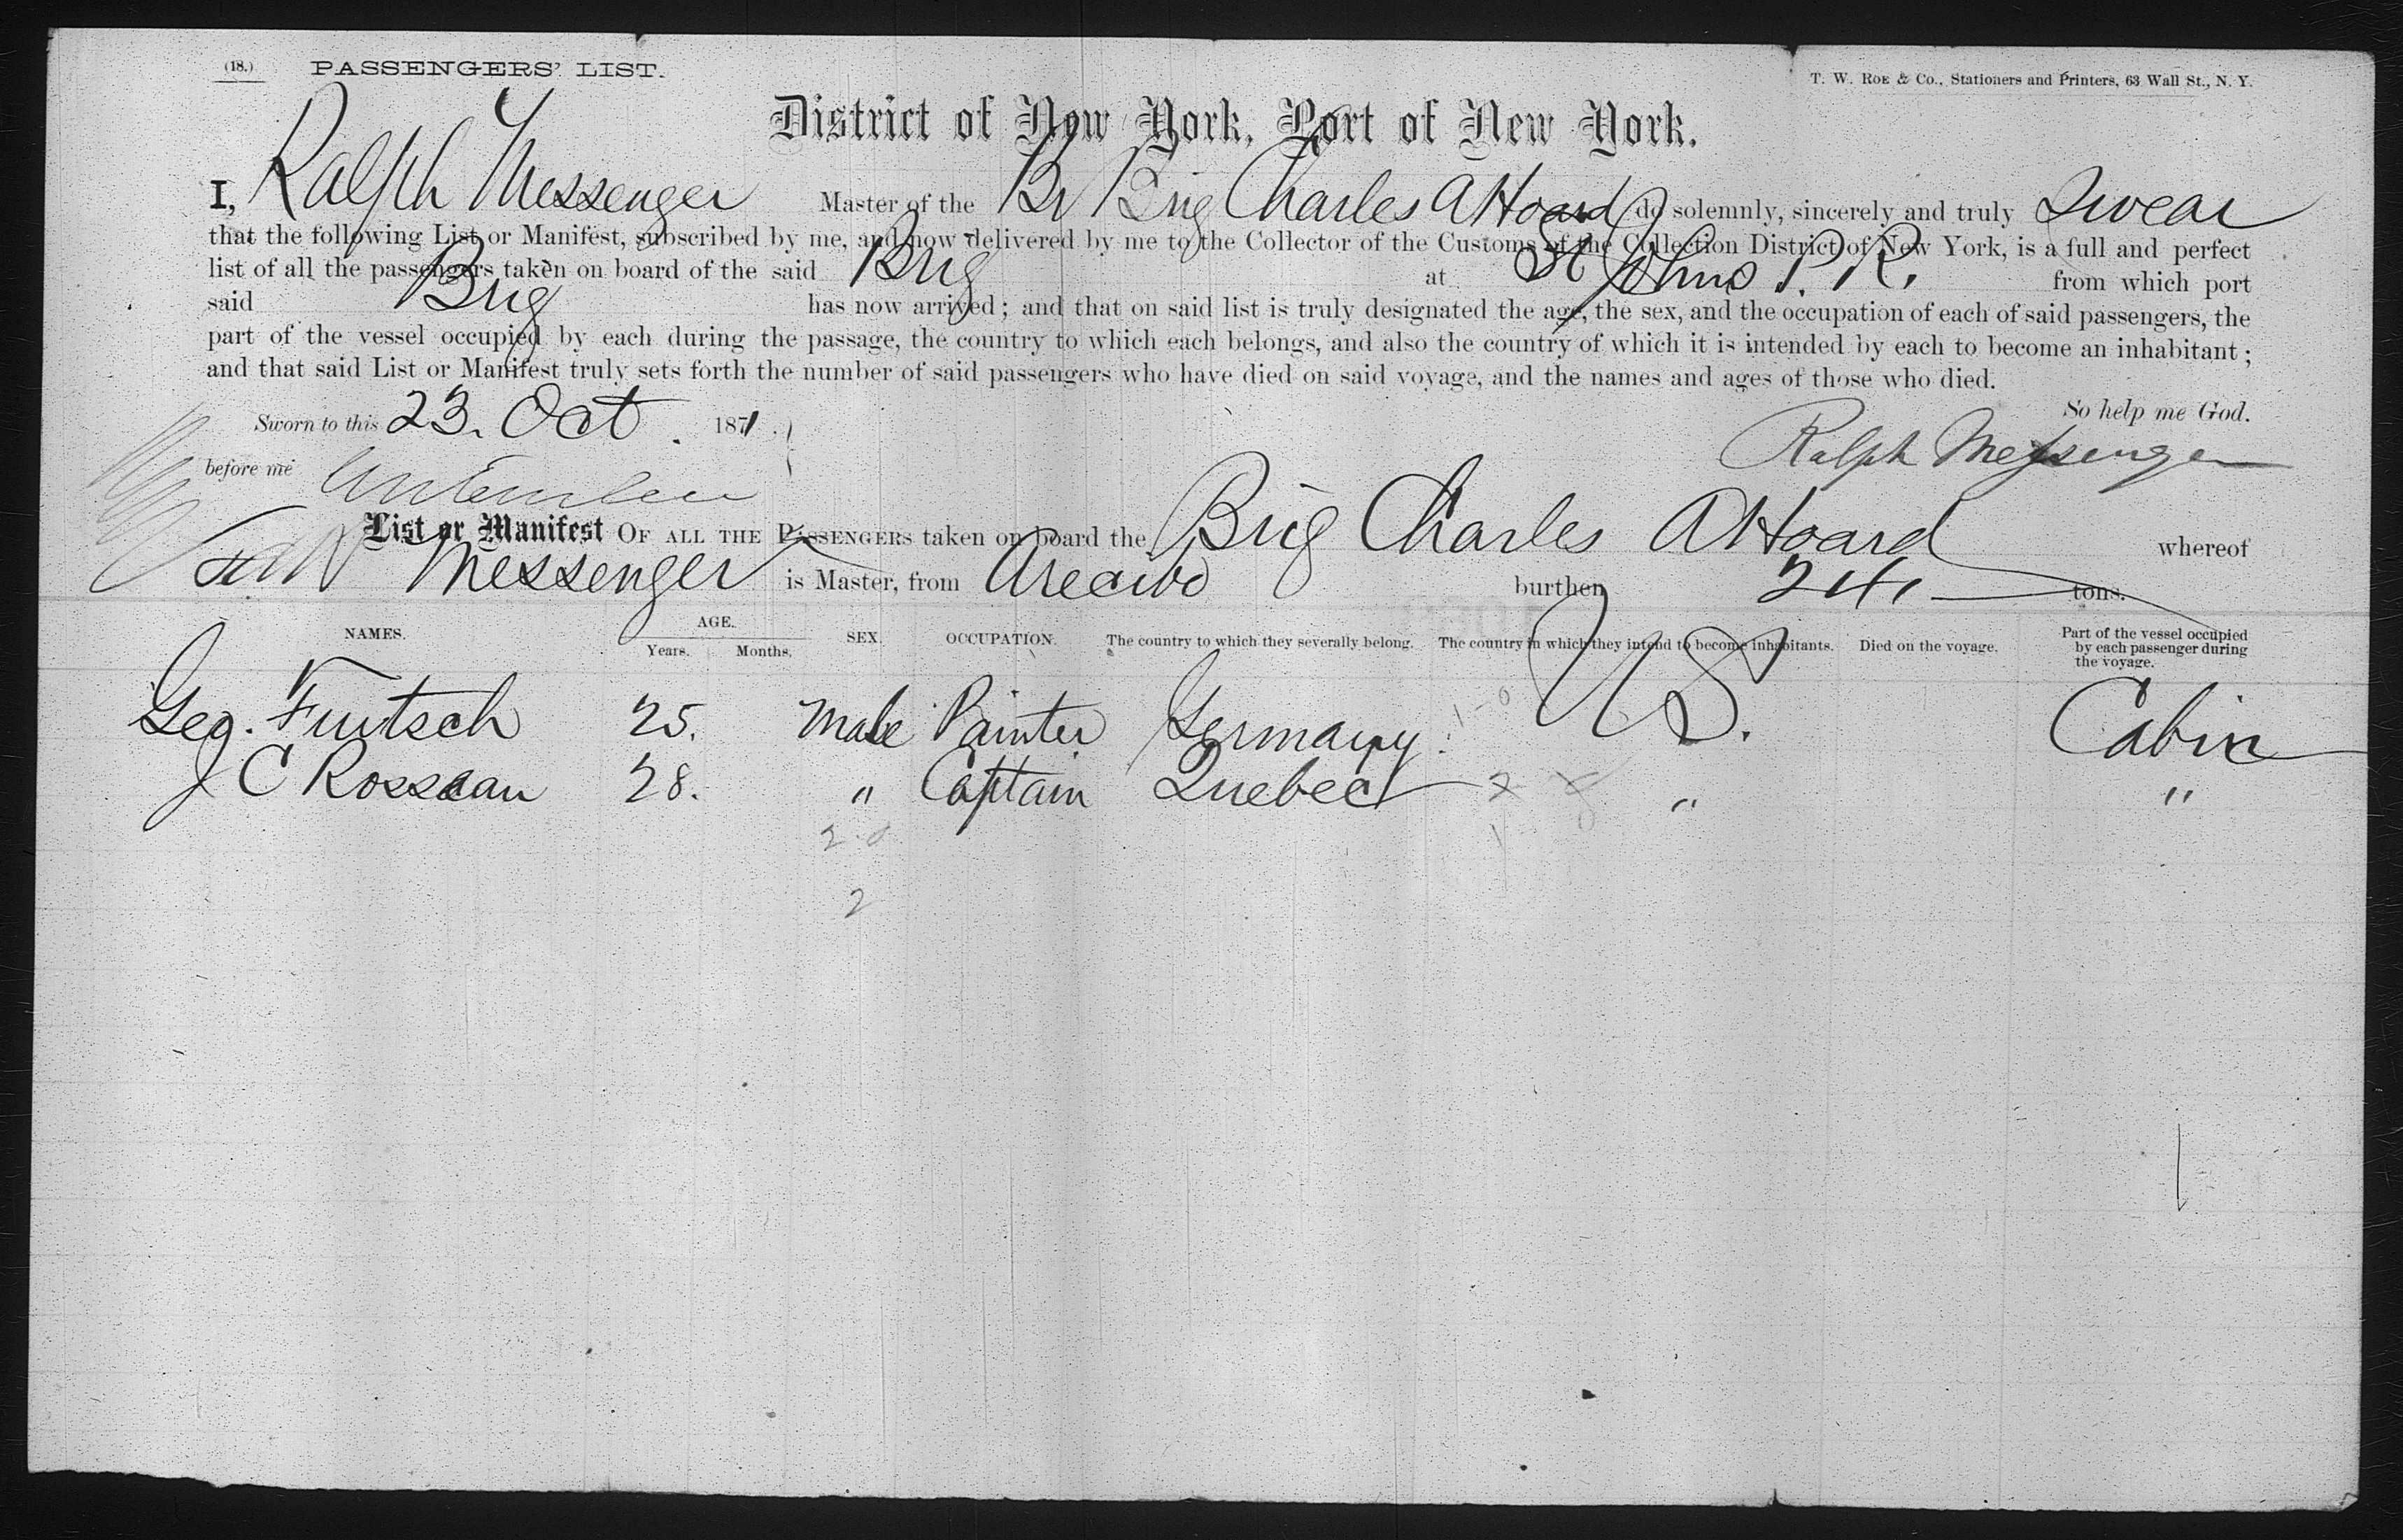 (18.) PASSENGERS' LIST.
T. W. ROE & Co., Stationers and Printers, 63 Wall St., N. Y.
District of New York, Port of New York.
I, Ralph Messenger Master of the Br Brig Charles A Hoard do solemnly, sincerely and truly Swear
that the following List or Manifest, subscribed by me, and now delivered by me to the Collector of the Customs of the Collection District of New York, is a full and perfect
list of all the passengers taken on board of the said Brig at St Johns P. R. from which port
said Brig has now arrived; and that on said list is truly designated the age, the sex, and the occupation of each of said passengers, the
part of the vessel occupied by each during the passage, the country to which each belongs, and also the country of which it is intended by each to become an inhabitant;
and that said List or Manifest truly sets forth the number of said passengers who have died on said voyage, and the names and ages of those who died.
So help me God.
Sworn to this 23. Oct. 1871.
Ralph Messenger
before me
List or Manifest OF ALL THE PASSENGERS taken on board the Brig Charles A Hoard whereof
Messenger is Master, from Arecibo burthen 241 tons.
NAMES. AGE. Years. Months. SEX. OCCUPATION. The country to which they severally belong. The country in which they intend to become inhabitants. Died on the voyage. Part of the vessel occupied by each passenger during the voyage.
Geo. 25. Male Painter Germany. U S. Cabin
J C Rosseau 28. " Captain Quebec " "
2